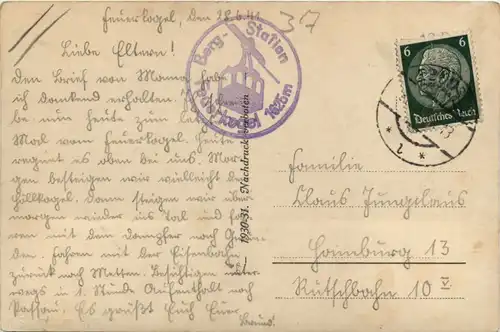 Feuerkogel, den 28.6.41
37
Liebe Eltern!
Den Brief von Mama habe
ich dankend erhalten.
be nun heute zum letzten
Mal vom Feuerkogel. Heute
regnet es oben bei uns. Mor-
gen besteigen wir vielleicht den
Höllkogel. Dann steigen wir über-
morgen wieder ins Tal und fah-
ren mit dem Dampfer nach Gmun-
den. Fahren mit der Eisenbahn
zurück nach Metten. Besichtigen unter-
wegs in 1. Stunde Aufenthalt noch
Passau. Es grüßt Euch Euer
Berg-Station
Feuerkogel 1625m
1930-31. Nachdruck verboten
6 6
Deutsches Reich
Familie
Claus Jungclaus
Hamburg 13
Rutschbahn 10 V